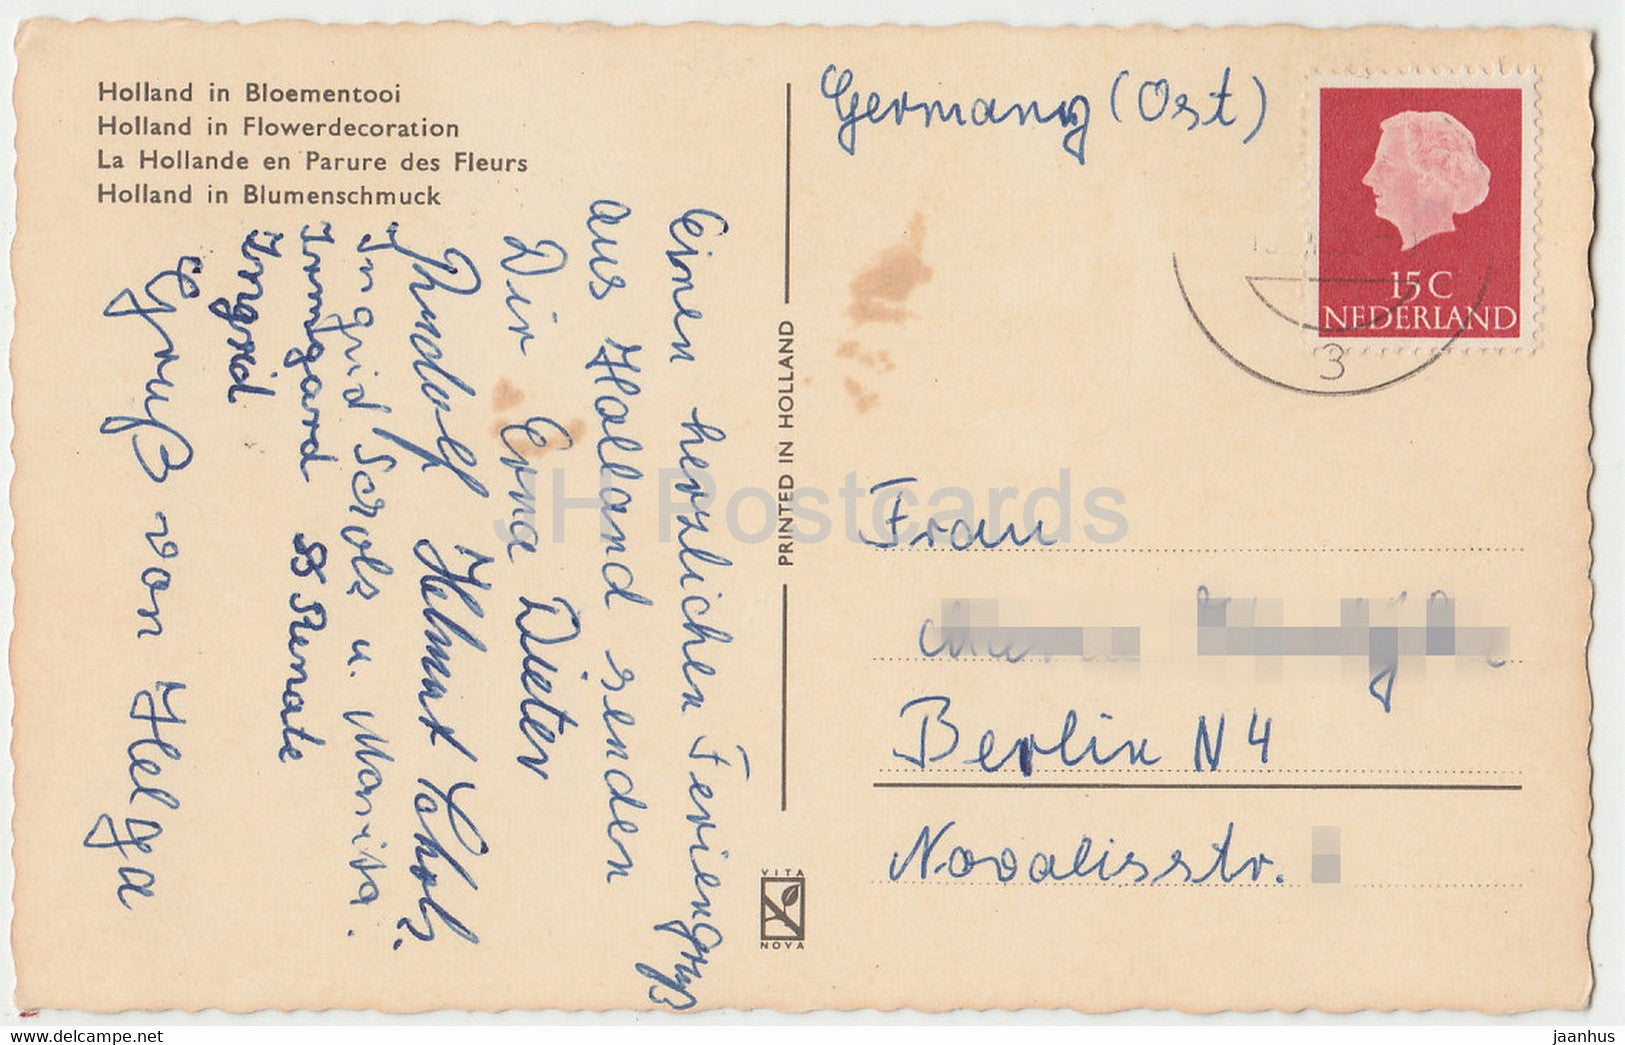 Holland in Bloementooi
Holland in Flowerdecoration
La Hollande en Parure des Fleurs
Holland in Blumenschmuck
Einen herzlichen Feriengruß
aus Holland senden
Dir Erna Dieter
Rudolf Helmut Scholz.
Ingrid Scholz u. Marita.
Irmgard Renate
Ingrid
Gruß von Helga
PRINTED IN HOLLAND
VITA
NOVA
Germany (Ost)
15 C
NEDERLAND
3
Frau
Berlin N 4
Novalisstr.
JH Postcards
www.delcampe.net
jaanhus